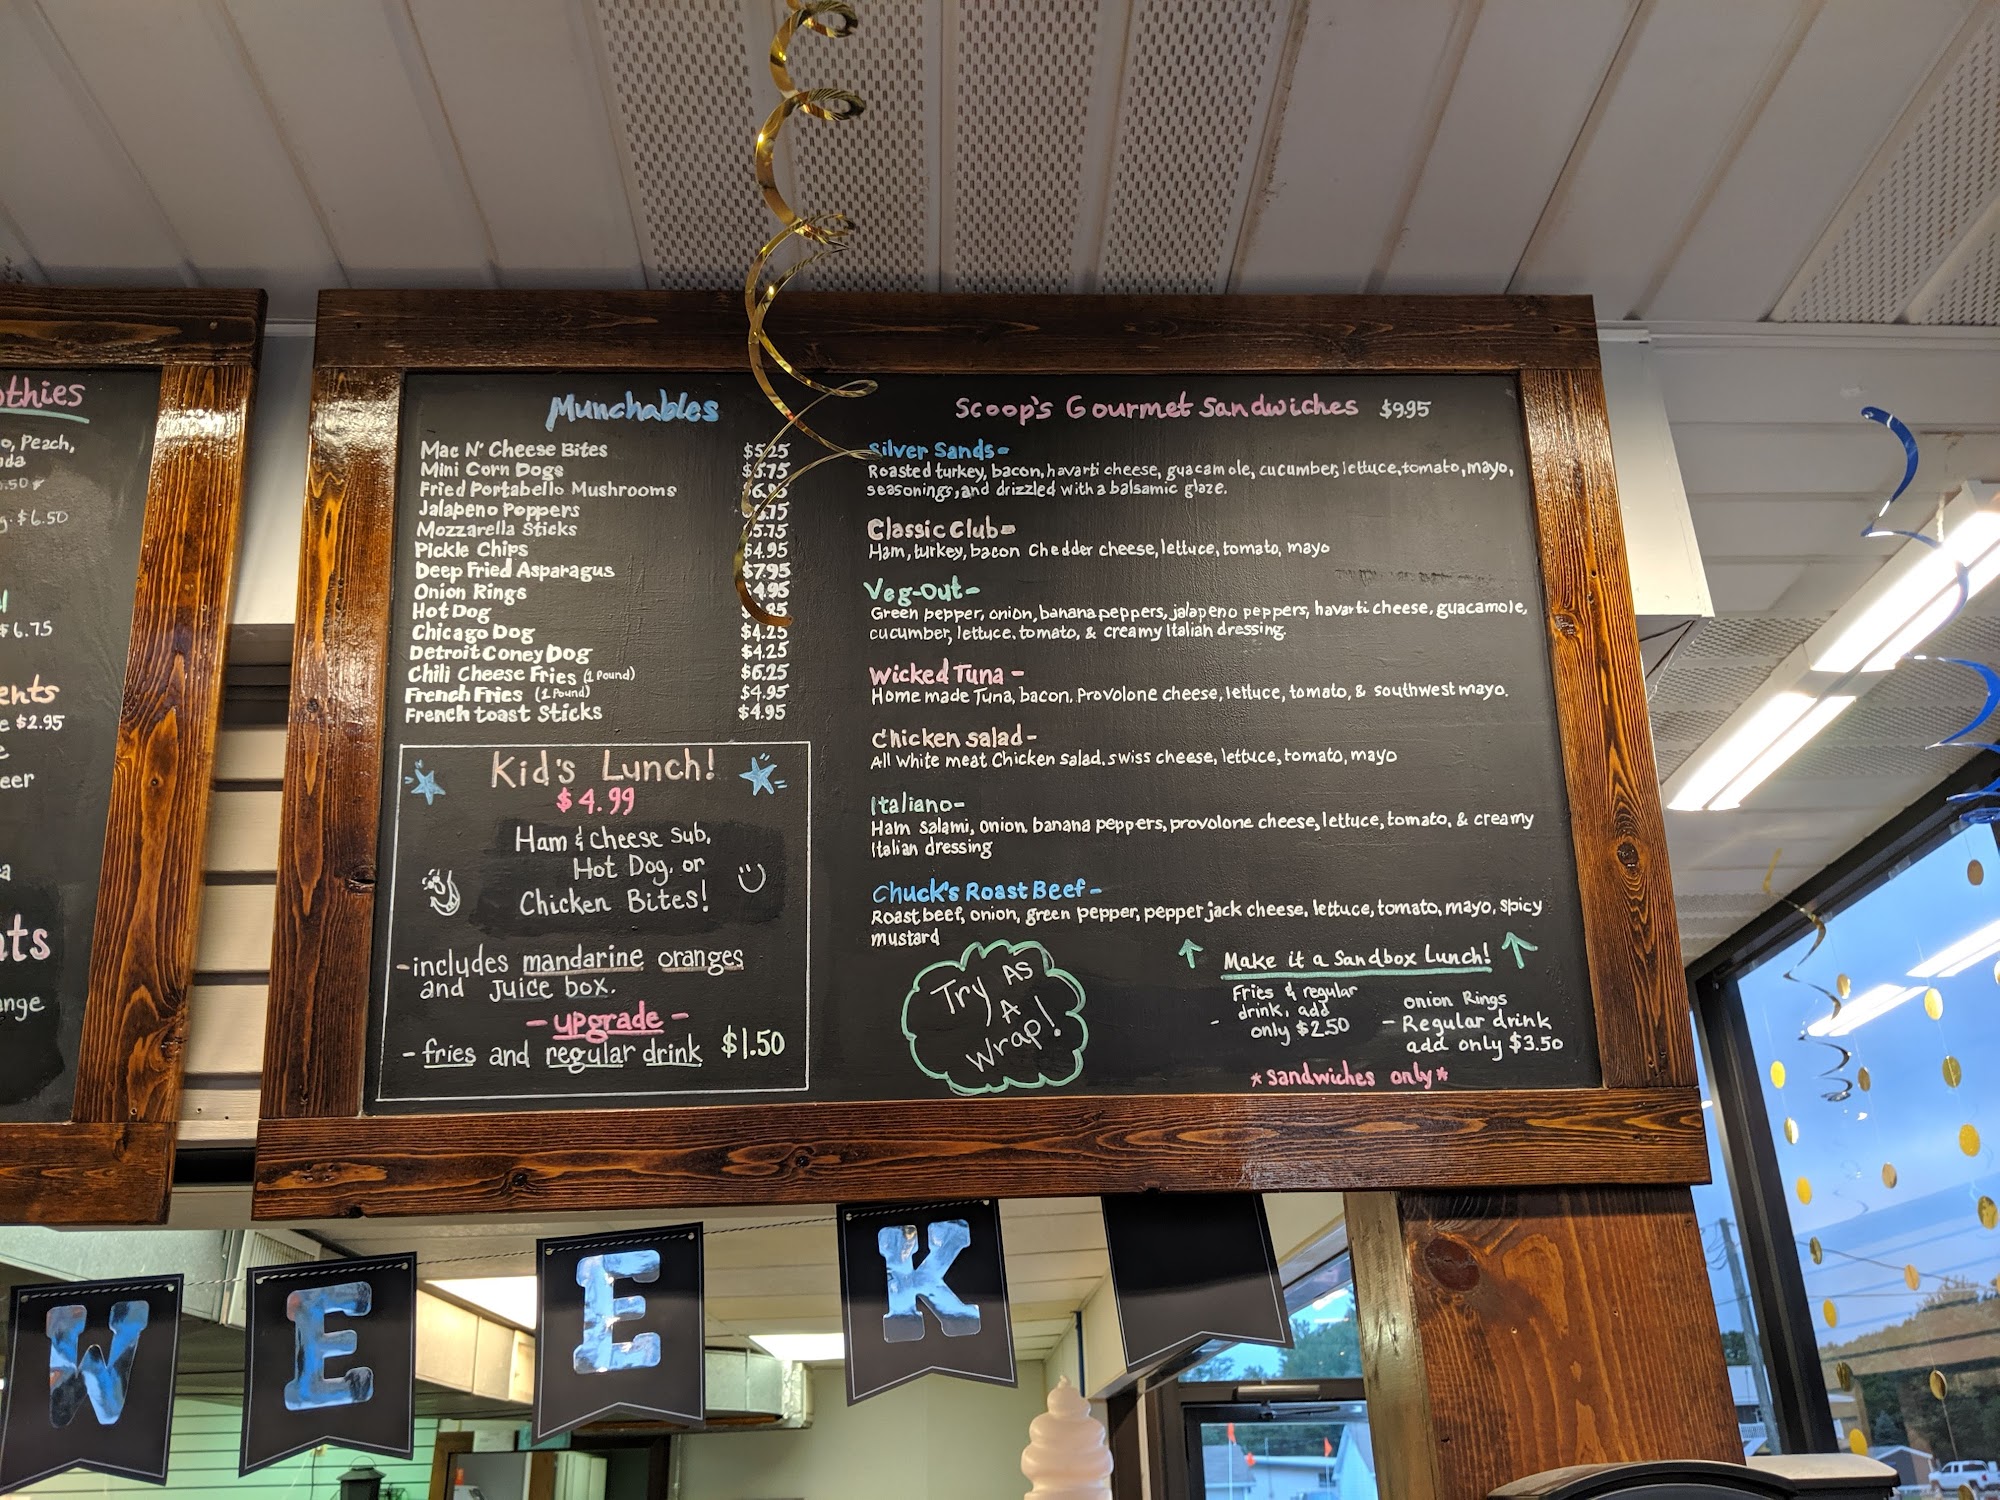 othies
o, Peach,
ada
$6.50
$6.75
ents
$2.95
eer
nts
ange
Munchables
Mac N' Cheese Bites $5.25
Mini Corn Dogs $5.75
Fried Portabello Mushrooms
Jalapeno Poppers
Mozzarella Sticks $5.75
Pickle Chips $4.95
Deep Fried Asparagus $7.95
Onion Rings $4.95
Hot Dog
Chicago Dog $4.25
Detroit Coney Dog $4.25
Chili Cheese Fries (1 Pound) $6.25
French Fries (1 Pound) $4.95
French toast Sticks $4.95
Kid's Lunch!
$4.99
Ham & Cheese Sub,
Hot Dog, or
Chicken Bites!
-includes mandarine oranges
and Juice box.
- upgrade -
- fries and regular drink $1.50
Scoop's Gourmet Sandwiches $9.95
Silver Sands-
Roasted turkey, bacon, havarti cheese, guacamole, cucumber, lettuce, tomato, mayo,
seasonings, and drizzled with a balsamic glaze.
Classic Club-
Ham, turkey, bacon Chedder cheese, lettuce, tomato, mayo
Veg-Out-
Green pepper, onion, banana peppers, jalapeno peppers, havarti cheese, guacamole,
cucumber, lettuce. tomato, & creamy Italian dressing.
Wicked Tuna -
Home made Tuna, bacon, Provolone cheese, lettuce, tomato, & southwest mayo.
Chicken salad-
All White meat Chicken salad. swiss cheese, lettuce, tomato, mayo
Italiano-
Ham Salami, onion. banana peppers, provolone cheese, lettuce, tomato, & creamy
Italian dressing
Chuck's Roast Beef-
Roast beef, onion, green pepper, pepper jack cheese, lettuce, tomato, mayo, spicy
mustard
Try AS
A
Wrap!
Make it a Sandbox Lunch!
Fries & regular
drink, add
- only $2.50
onion Rings
- Regular drink
add only $3.50
*sandwiches only*
WEEK